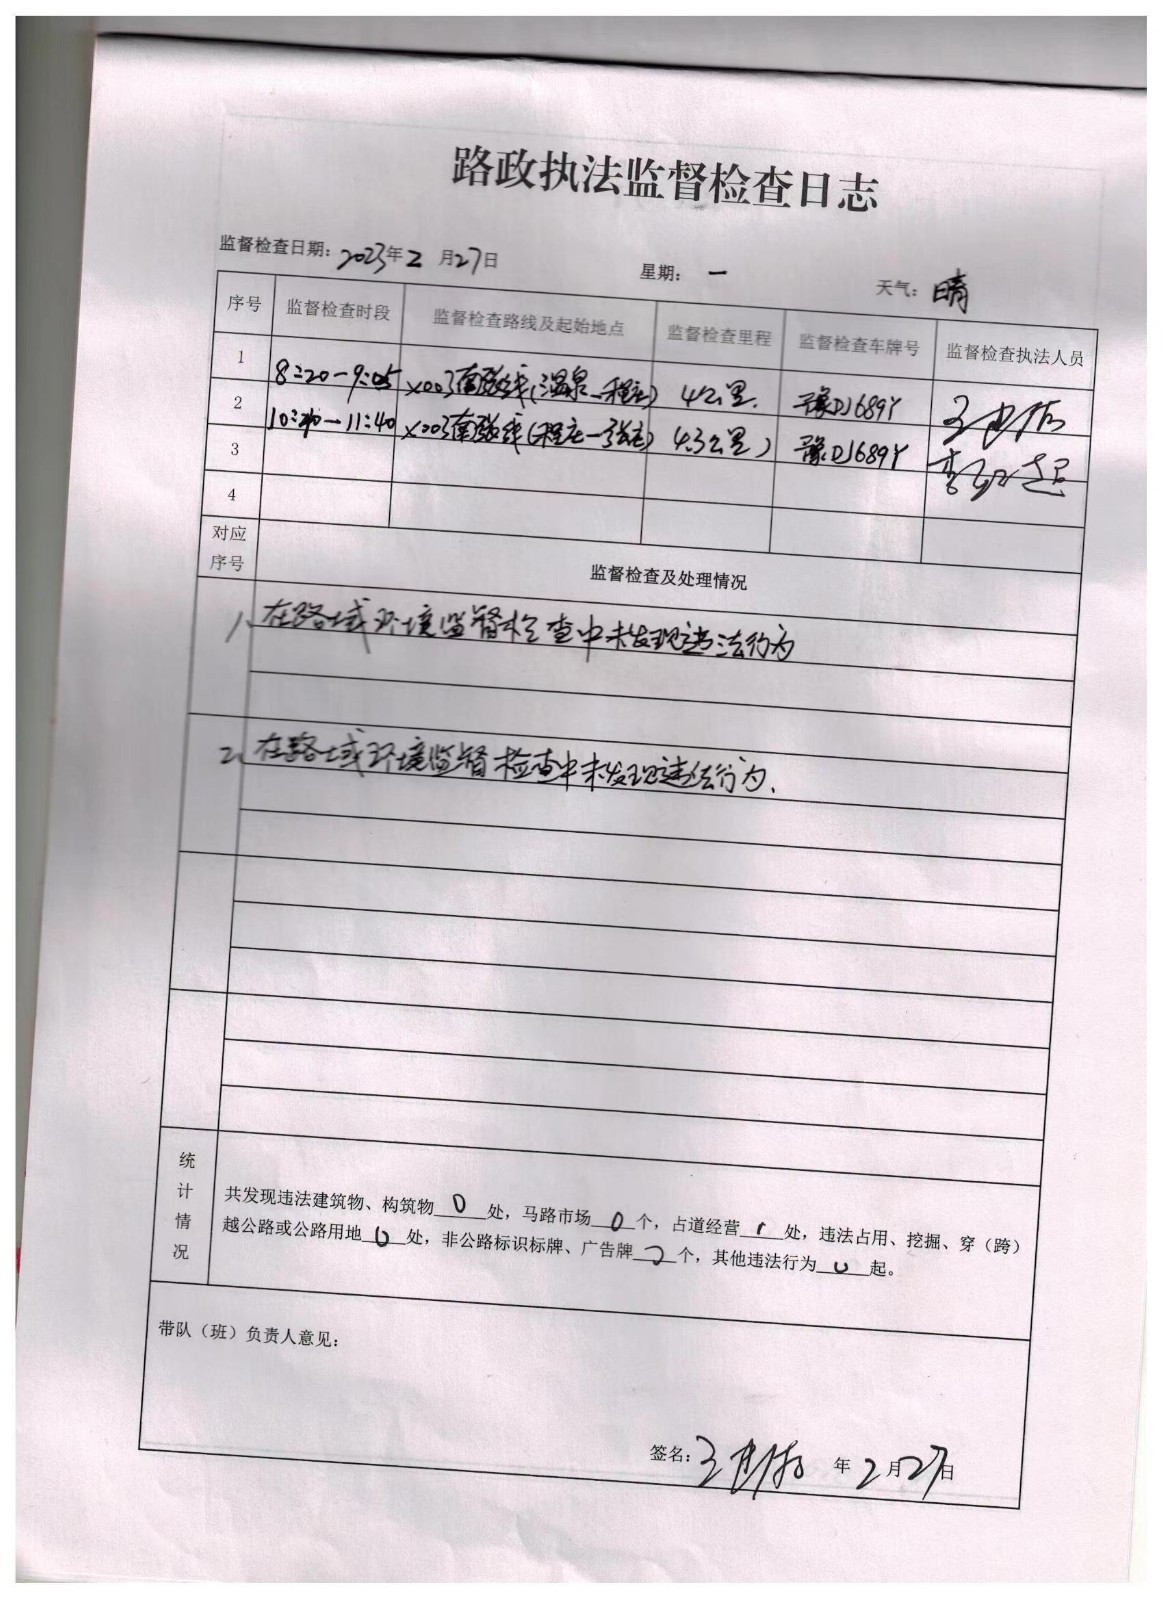 路政执法监督检查日志
监督检查日期：2023年2月27日 星期：一 天气：晴
序号 监督检查时段 监督检查路线及起始地点 监督检查里程 监督检查车牌号 监督检查执法人员
1 8:20-9:05 X003南张线(温泉-程庄) 4.2公里. 豫DJ689Y
2 10:20-11:40 X003南张线(程庄-张庄) 4.3公里) 豫DJ689Y
3
4
对应
序号
监督检查及处理情况
1、在路域环境监督检查中未发现违法行为
2、在路域环境监督检查中未发现违法行为.
统计情况
共发现违法建筑物、构筑物0处，马路市场0个，占道经营处，违法占用、挖掘、穿（跨）
越公路或公路用地0处，非公路标识标牌、广告牌个，其他违法行为0起。
带队（班）负责人意见：
签名： 年2月27日